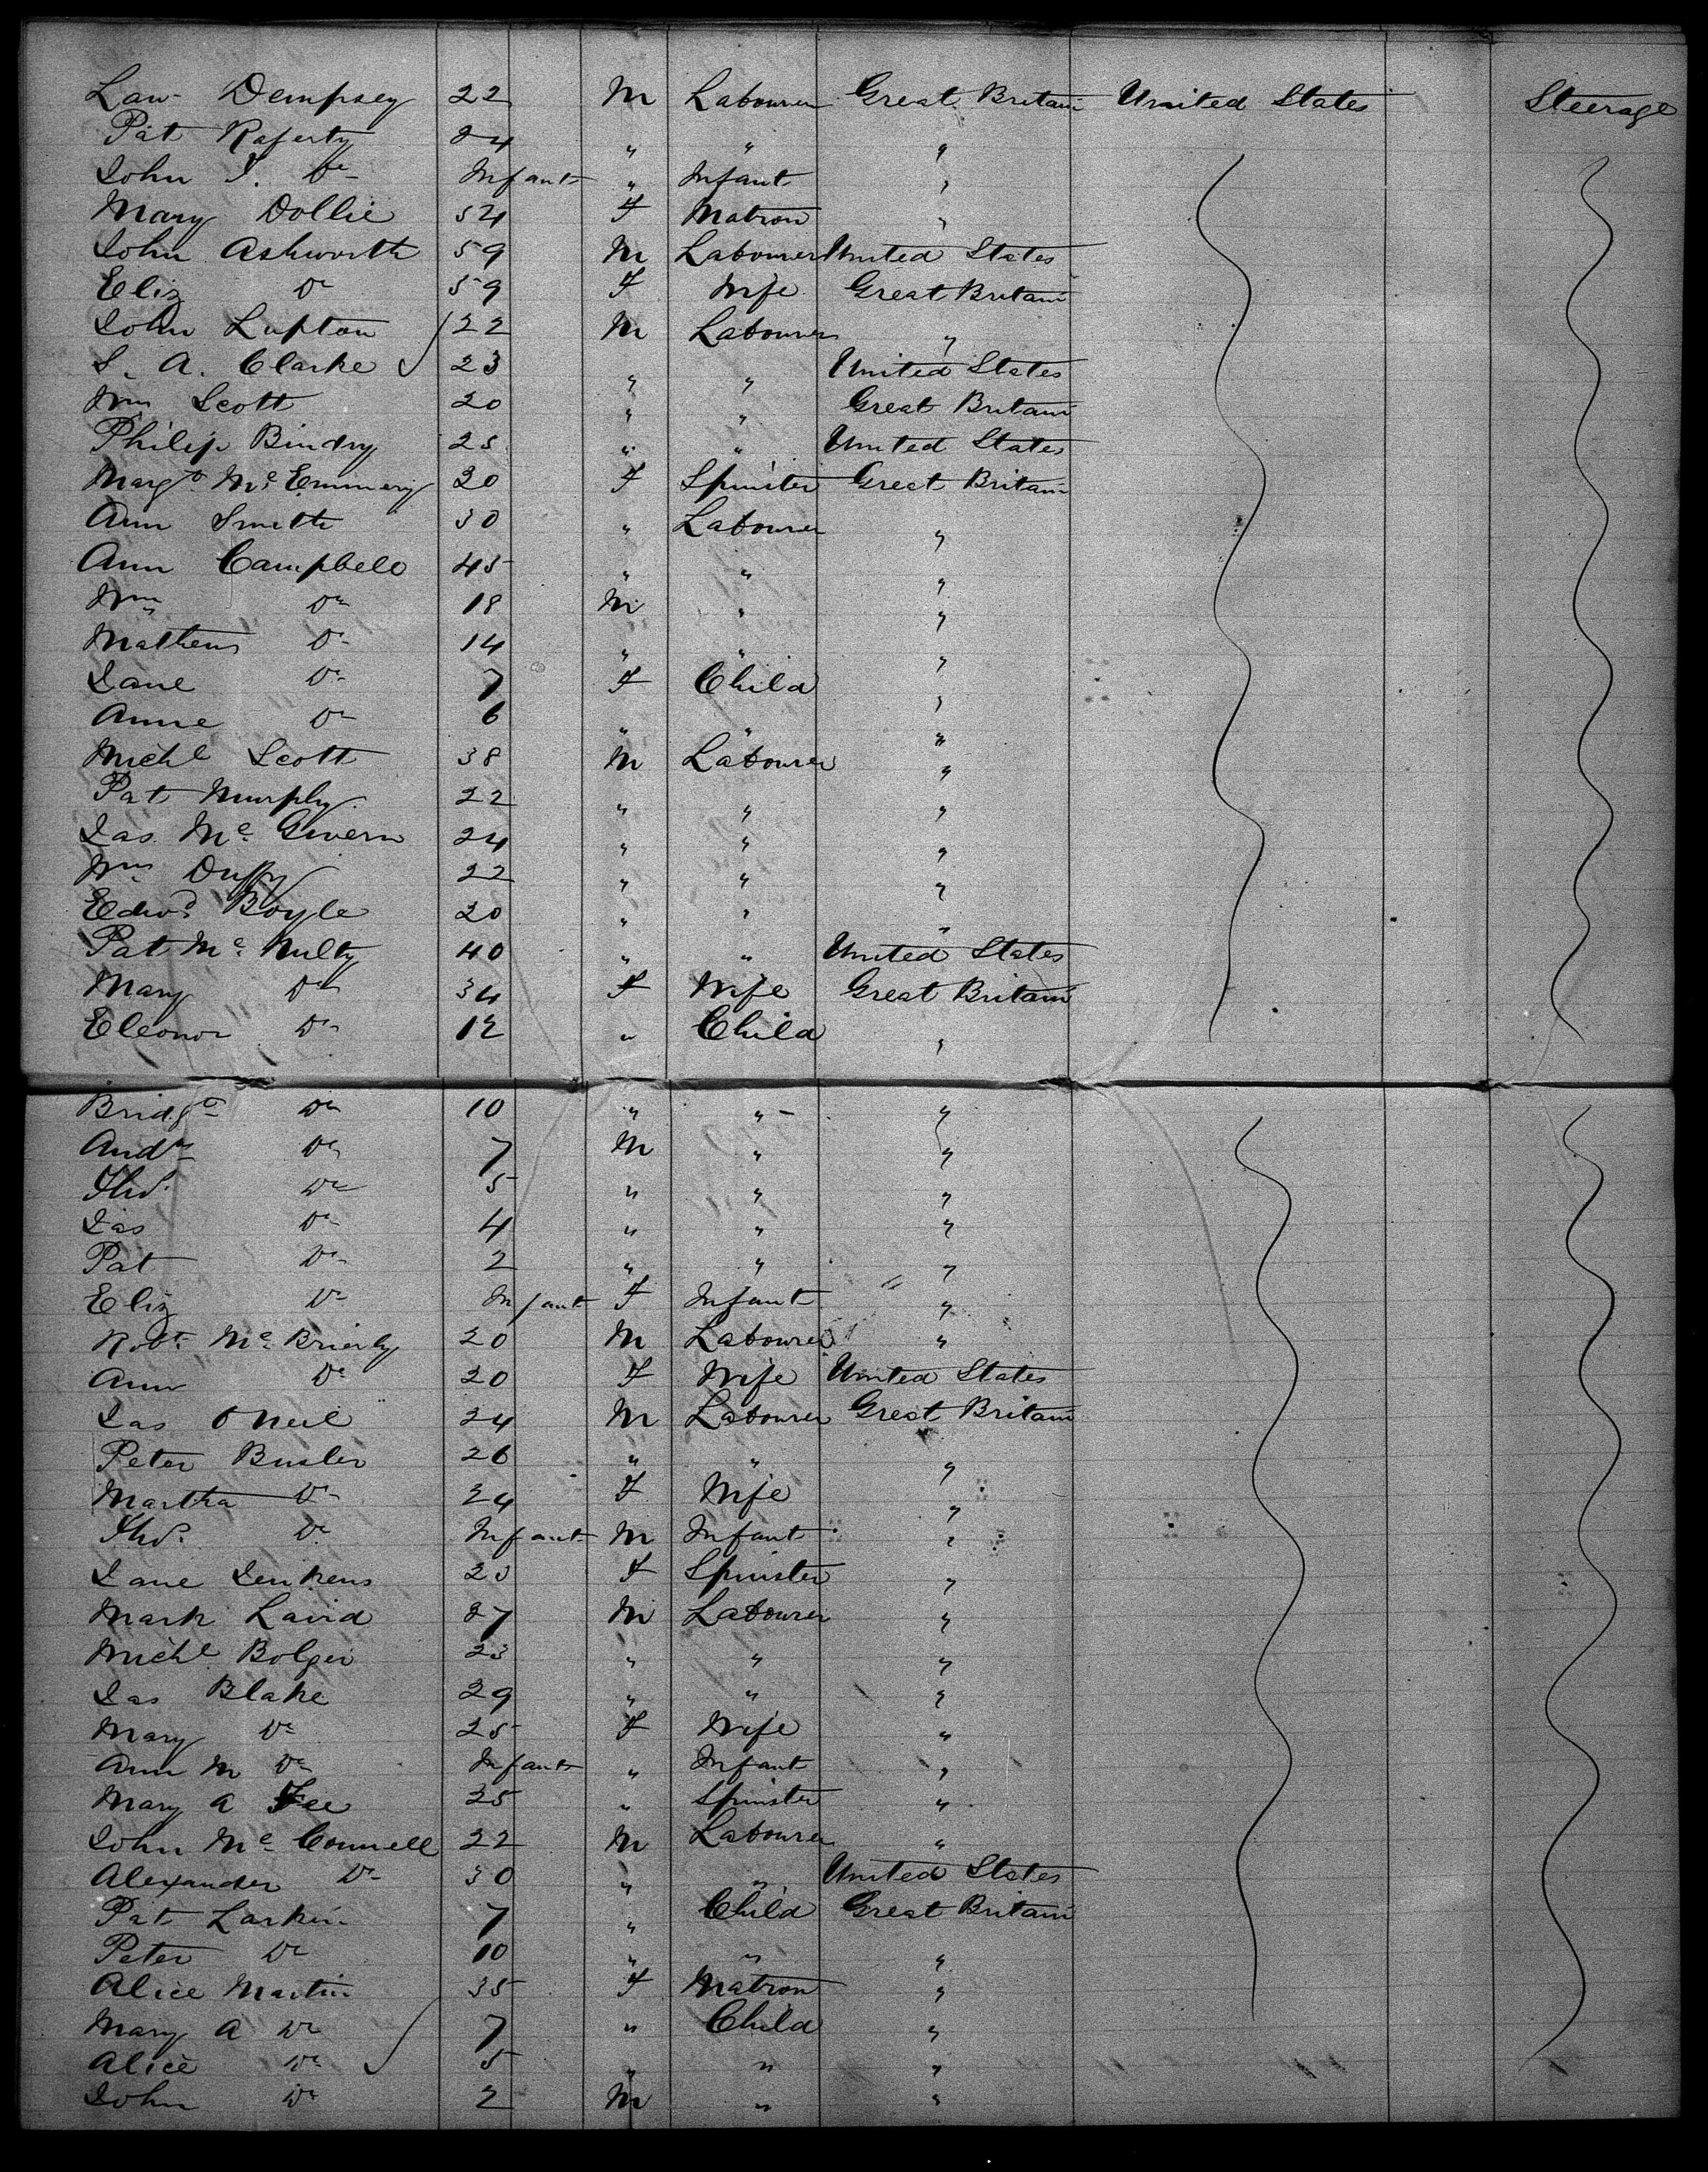 Law Dempsey 22 M Labourer Great Britain United States Steerage
Pat Raferty 24 " " "
John J. Do Infant " Infant "
Mary Dollie 54 F Matron "
John Ashworth 59 M Labourer United States
Eliz Do 59 F Wife Great Britain
John Lupton 22 M Labourer "
S. A. Clarke 23 " " United States
Wm Scott 20 " " Great Britain
Philip Bindry 25 " " United States
Margt Mc Emmery 20 F Spinster Great Britain
Ann Smith 30 " Labourer "
Ann Campbell 45 " " "
Wm Do 18 M " "
Mathew Do 14 " " "
Jane Do 7 F Child "
Anne Do 6 " " "
Michl Scott 38 M Labourer "
Pat Murphy 22 " " "
Jas. Mc Givern 24 " " "
Wm Duffy 22 " " "
Edwd Boyle 20 " " "
Pat Mc Nulty 40 " " United States
Mary Do 34 F Wife Great Britain
Eleonor Do 12 " Child "
Bridgt Do 10 " " "
Andw Do 7 M " "
Thos. Do 5 " " "
Jas Do 4 " " "
Pat Do 2 " " "
Eliz Do Infant F Infant "
Robt Mc Brierly 20 M Labourer "
Ann Do 20 F Wife United States
Jas O Neil 24 M Labourer Great Britain
Peter Busler 26 " " "
Martha Do 24 F Wife "
Thos. Do Infant M Infant "
Jane Jenkens 23 F Spinster "
Mark Lavid 27 M Labourer "
Michl Bolger 23 " " "
Jas Blake 29 " " "
Mary Do 25 F Wife "
Ann M Do Infant " Infant "
Mary A Fee 25 " Spinster "
John Mc Connell 22 M Labourer "
Alexander Do 30 " " United States
Pat Larkin 7 " Child Great Britain
Peter Do 10 " " "
Alice Martin 35 F Matron "
Mary A Do 7 " Child "
Alice Do 5 " " "
John Do 2 M " "